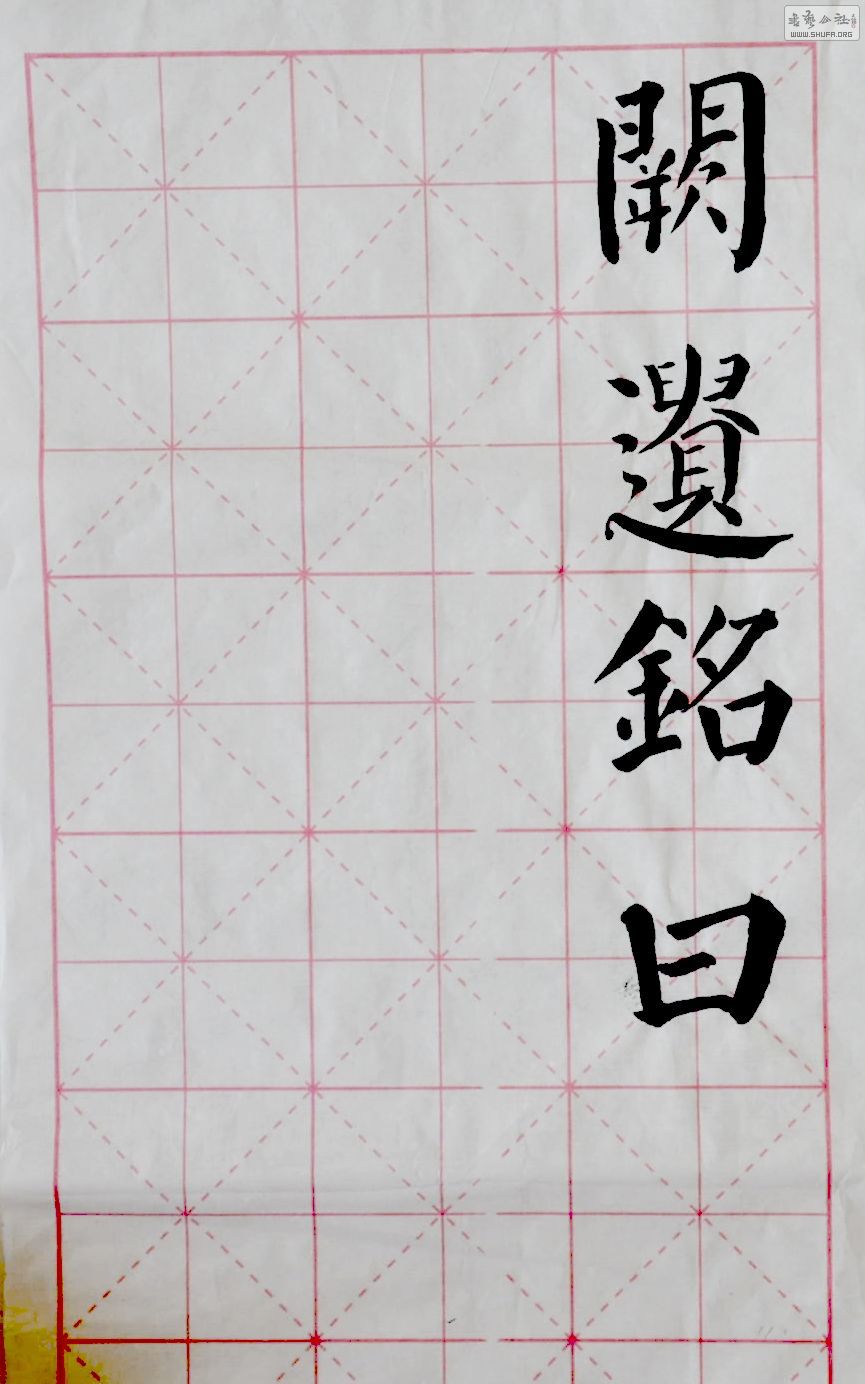 闕遺銘曰
書藝公社
WWW.SHUFA.ORG